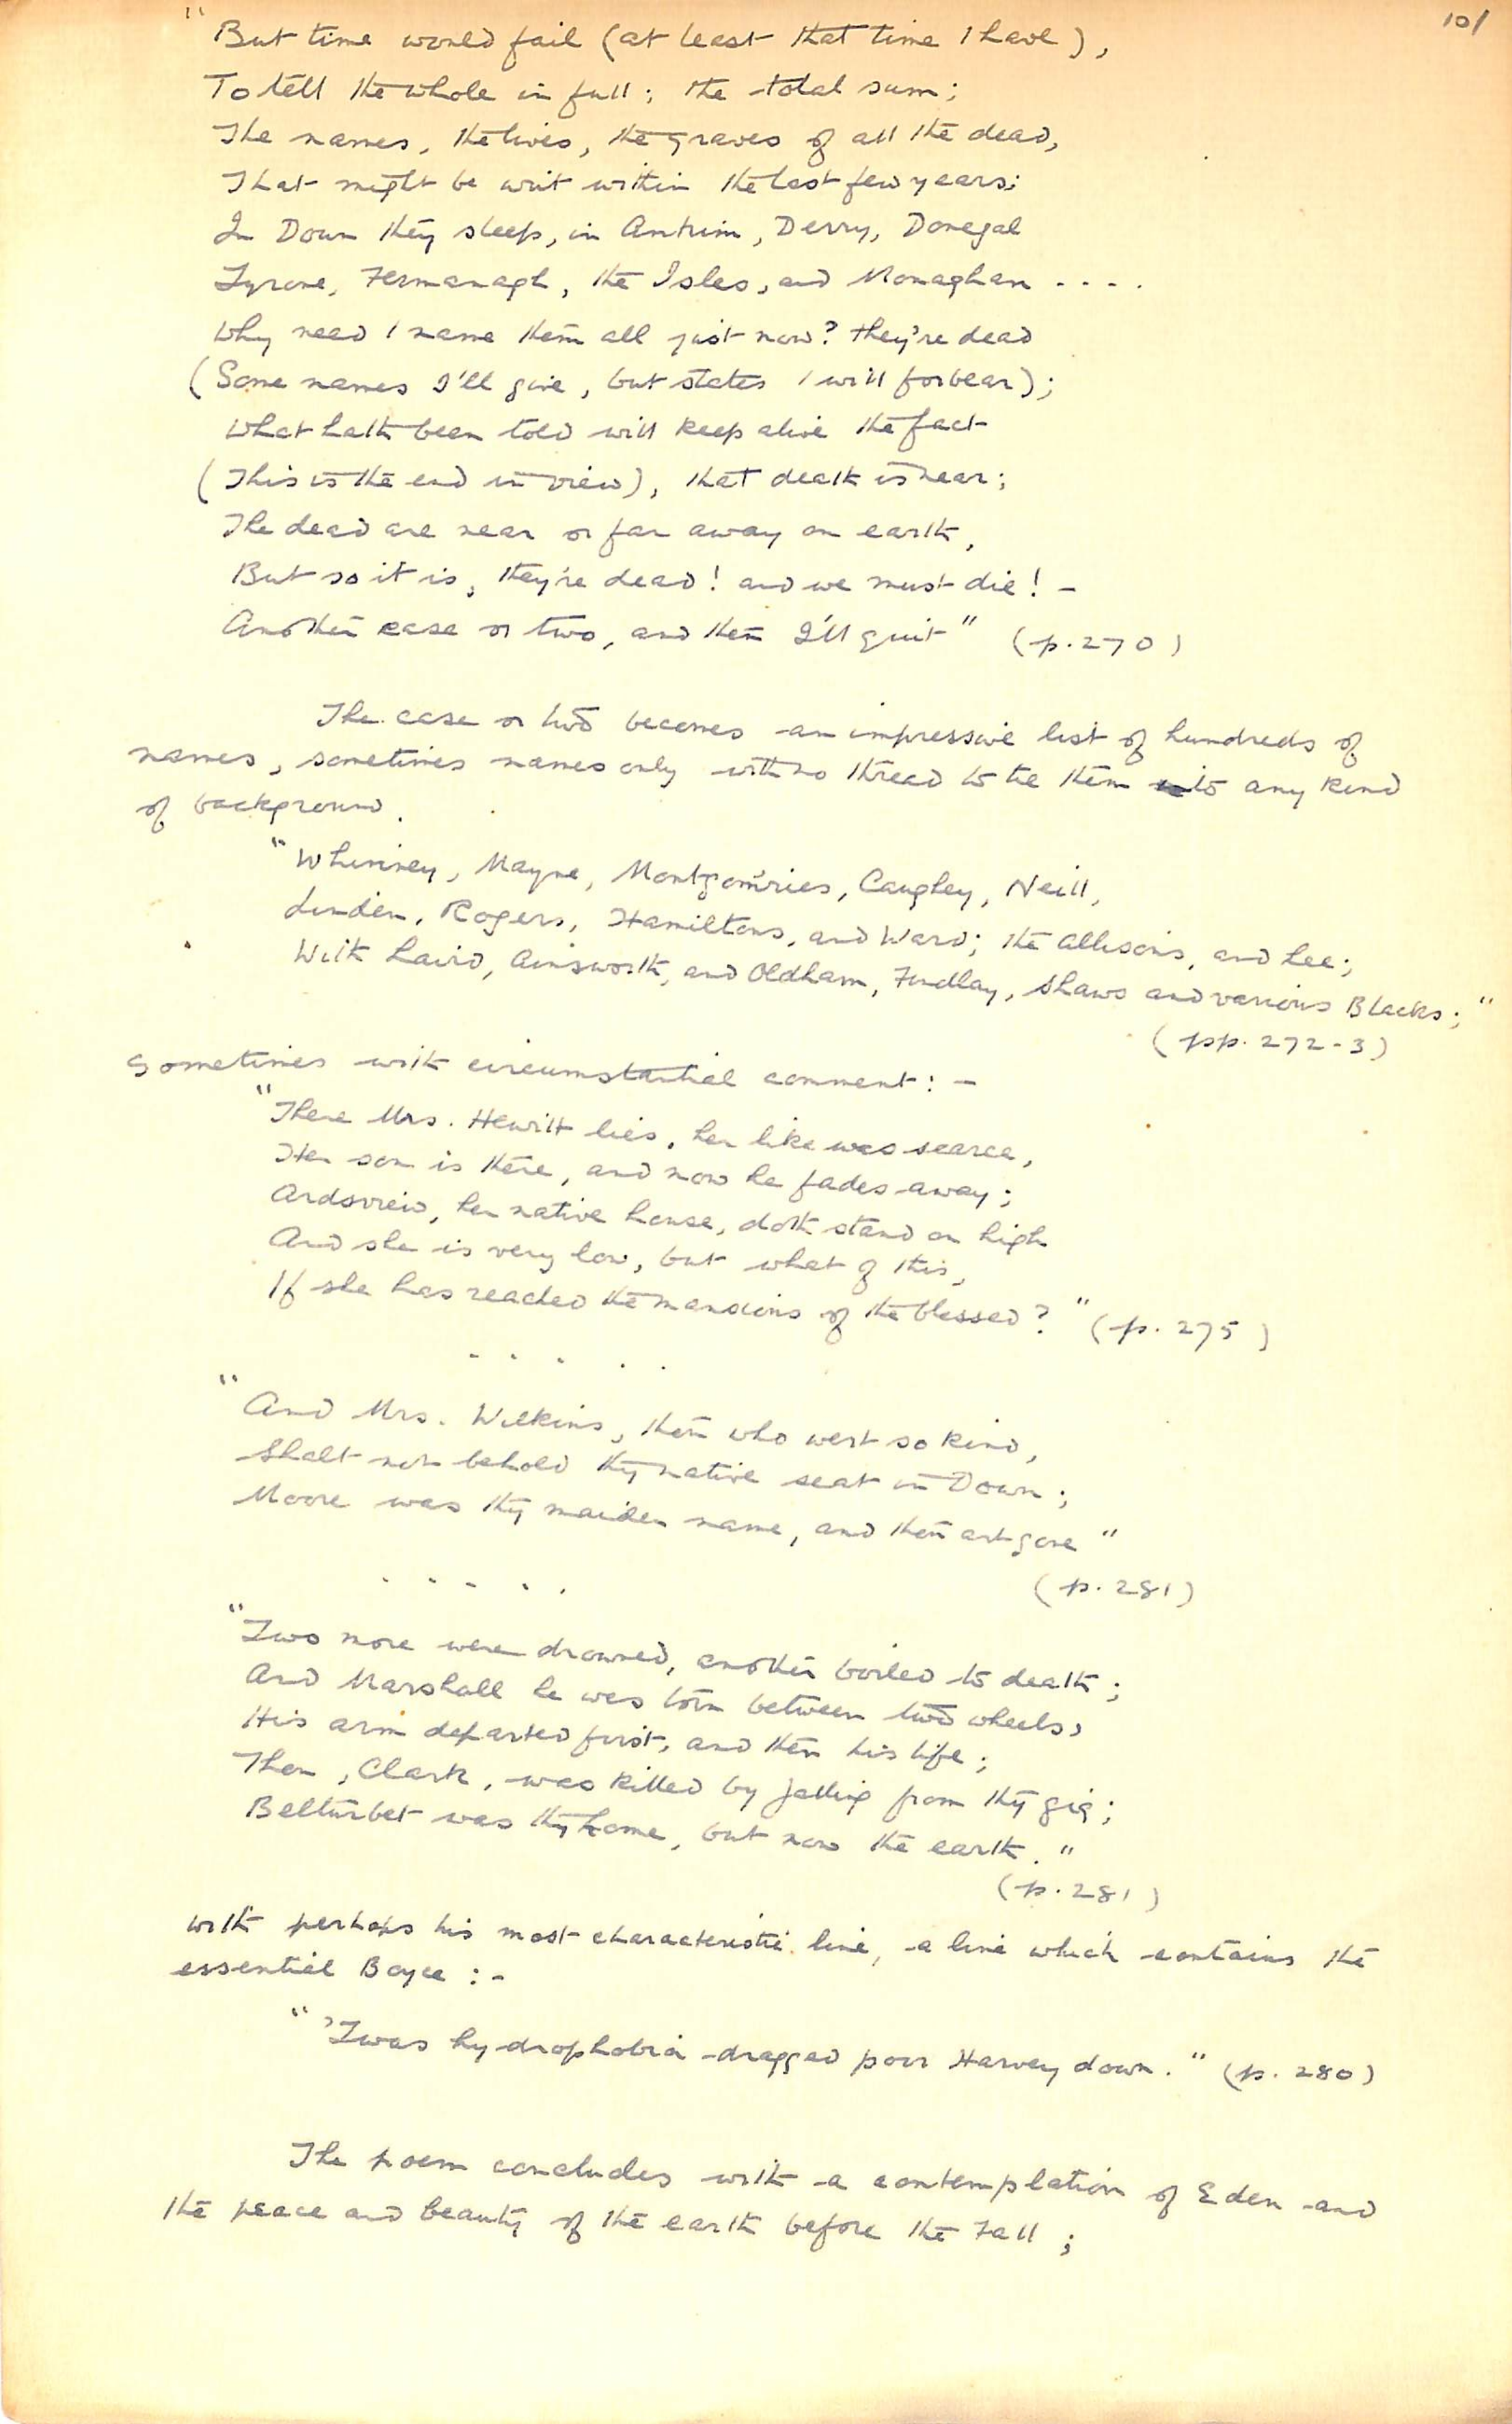 101
"But time would fail (at least that time I have),
To tell the whole in full; the total sum;
The names, the lives, the graves of all the dead,
That might be writ within the last few years;
In Down they sleep, in Antrim, Derry, Donegal
Tyrone, Fermanagh, the Isles, and Monaghan ....
Why need I name them all just now? they're dead
(Some names I'll give, but states I will forbear);
What hath been told will keep alive the fact
(This is the end in view), that death is near;
The dead are near or far away on earth,
But so it is, they're dead! and we must die! -
Another case or two, and then I'll quit" (p. 270)
The case or two becomes an impressive list of hundreds of
names, sometimes names only with no thread to tie them into any kind
of background.
"Whinney, Mayne, Montgom'ries, Caughey, Neill,
Linden, Rogers, Hamiltons, and Ward; the Allisons, and Lee;
With Laird, Ainsworth, and Oldham, Findlay, Shaws and various Blacks;"
(pp. 272-3)
Sometimes with circumstantial comment: -
"There Mrs. Hewitt lies, her like was scarce,
Her son is there, and now he fades away;
Ardsview, her native house, doth stand on high
And she is very low, but what of this,
If she has reached the mansions of the blessed?" (p. 275)
. . . . .
"And Mrs. Wilkins, thou who wert so kind,
Shalt not behold thy native seat in Down;
Moore was thy maiden name, and thou art gone"
(p. 281)
. . . . .
"Two more were drowned, another boiled to death;
And Marshall he was torn between two wheels,
His arm departed first, and then his life;
Thou, Clark, was killed by falling from thy gig;
Belturbet was thy home, but now the earth."
(p. 281)
with perhaps his most characteristic line, a line which contains the
essential Boyce: -
"'Twas hydrophobia dragged poor Harvey down." (p. 280)
The poem concludes with a contemplation of Eden and
the peace and beauty of the earth before the Fall;